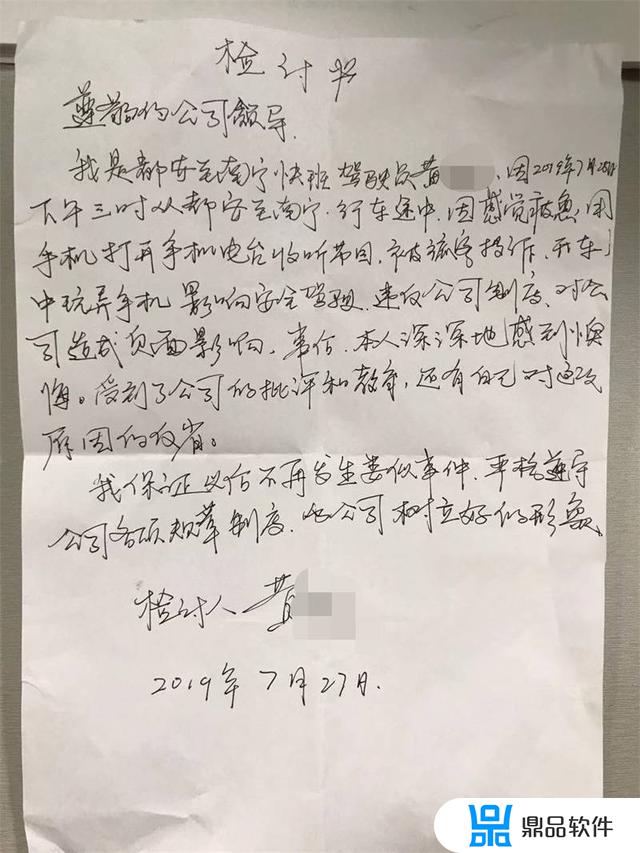 检讨书
尊敬的公司领导.
我是都安至南宁快班驾驶员黄 因2019年7月25日
下午三时从都安至南宁.行车途中.因感觉疲惫用
手机打开手机电台收听节目.被旅客投诉.开车
中玩弄手机影响安全驾驶.违反公司制度.对公
司造成负面影响.事后.本人深深地感到懊
悔。受到了公司的批评和教育,还有自己对这次
原因的反省。
我保证以后不再发生类似事件.严格遵守
公司各项规章制度.为公司树立好的形象.
检讨人 黄
2019年7月27日.
鼎品软件